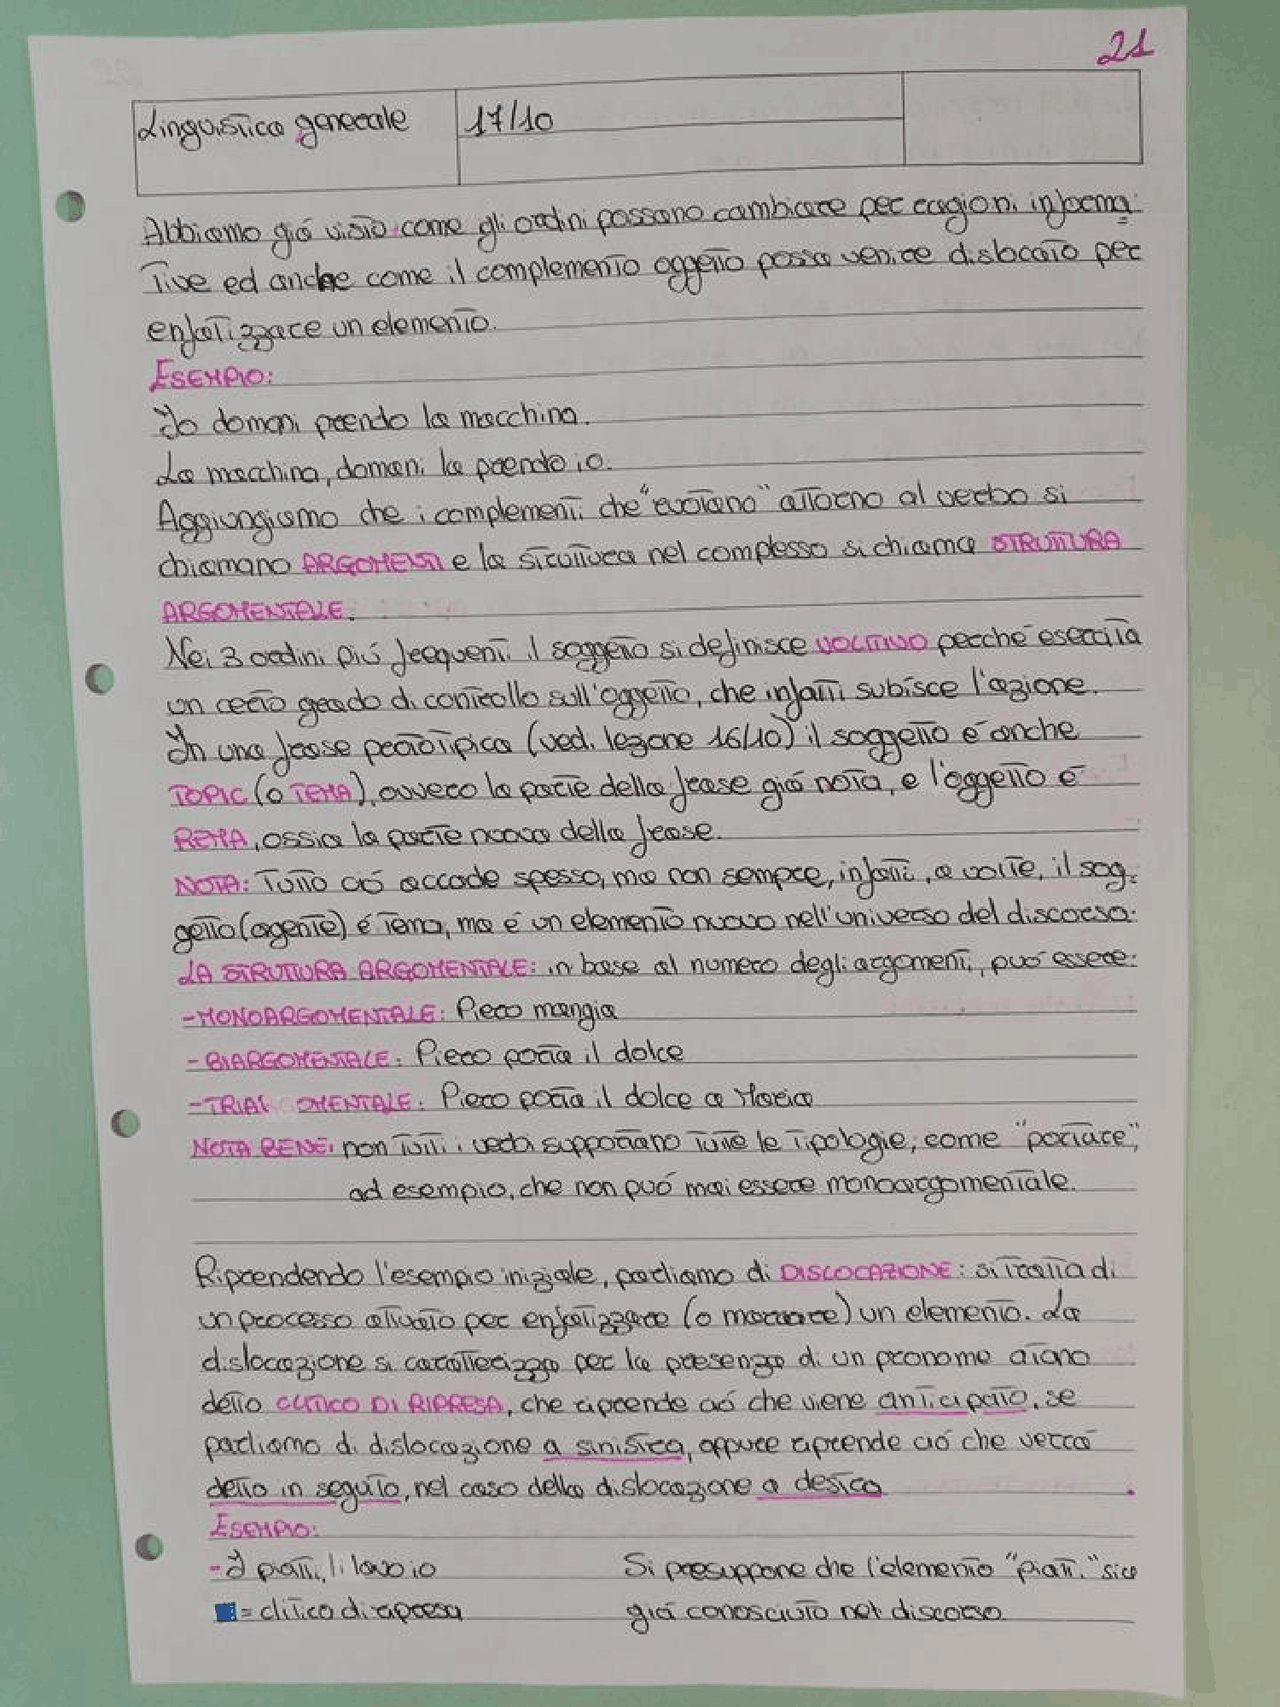 21
Linguistica generale
17/10
Abbiamo giá visto come gli ordini possano cambiare per ragioni informa=
tive ed anche come il complemento oggetto possa venire dislocato per
enfatizzare un elemento.
ESEMPIO:
Io domani prendo la macchina.
La macchina, domani la prendo io.
Aggiungiamo che i complementi che "ruotano" attorno al verbo si
chiamano ARGOMENTI e la struttura nel complesso si chiama STRUTTURA
ARGOMENTALE.
Nei 3 ordini piú frequenti il soggetto si definisce VOLITIVO perché esercita
un certo grado di controllo sull'oggetto, che infatti subisce l'azione.
In una frase prototipica (vedi lezione 16/10) il soggetto é anche
TOPIC (o TEMA), ovvero la parte della frase giá nota, e l'oggetto é
REMA, ossia la parte nuova della frase.
NOTA: Tutto ció accade spesso, ma non sempre, infatti, a volte, il sog=
getto (agente) é tema, ma é un elemento nuovo nell'universo del discorso.
LA STRUTTURA ARGOMENTALE: in base al numero degli argomenti, puó essere:
-MONOARGOMENTALE: Piero mangia
-BIARGOMENTALE: Piero porta il dolce
-TRIAR OMENTALE: Piero porta il dolce a Maria
NOTA BENE: non tutti i verbi supportano tutte le tipologie, come "portare",
ad esempio, che non puó mai essere monoargomentale.
Riprendendo l'esempio iniziale, parliamo di DISLOCAZIONE: si tratta di
un processo attuato per enfatizzare (o marcare) un elemento. La
dislocazione si caratterizza per la presenza di un pronome atono
detto CLITICO DI RIPRESA, che riprende ció che viene anticipato, se
parliamo di dislocazione a sinistra, oppure riprende ció che verrá
detto in seguito, nel caso della dislocazione a destra.
ESEMPIO:
- I piatti, li lavo io
= clitico di ripresa
Si presuppone che l'elemento "piatti" sia
giá conosciuto nel discorso